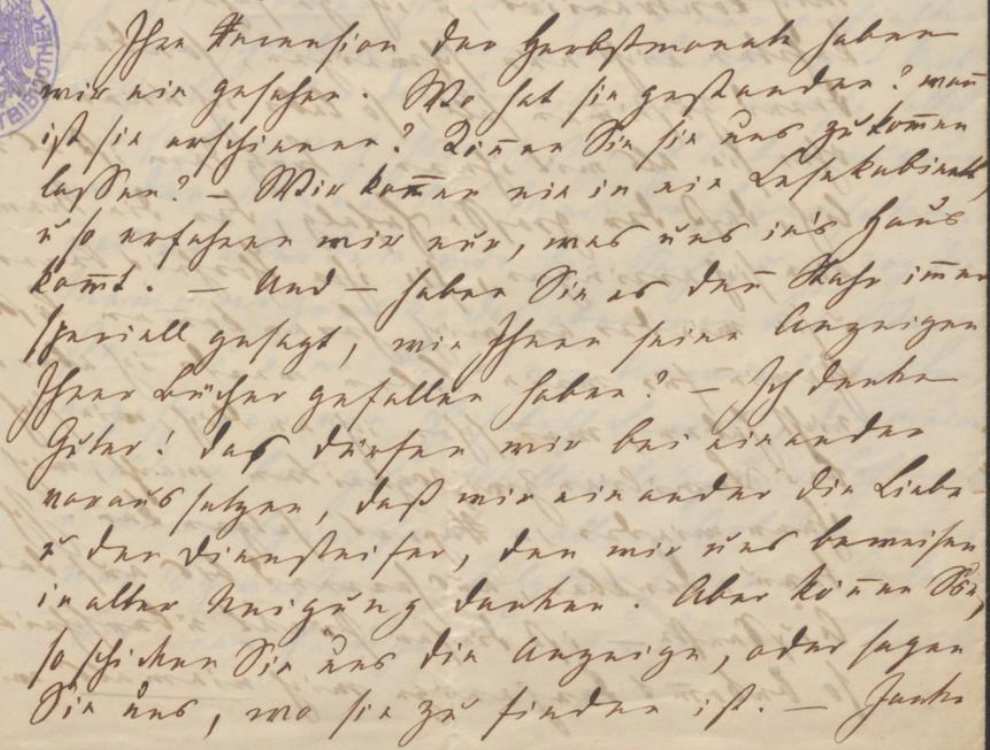 Ihre Recension der Herbstmonate haben
wir nie gesehen. Wo hat sie gestanden? wañ
ist sie erschienen? Köñen Sie sie uns zukom̅en
lassen? — Wir kom̅en nie in ein Lesekabinett,
u so erfahren wir nur, was uns in's Haus
kom̅t. — Und — haben Sie es deñ Stahr im̅er
speciell gesagt, wie Ihnen seine Anzeigen
Ihrer Bücher gefallen haben? — Ich denke
Guter! das dürfen wir bei einander
voraus setzen, daß wir einander die Liebe
u den Diensteifer, den wir uns beweisen
in alter Neigung danken. Aber köñen Sie,
so schicken Sie uns die Anzeige, oder sagen
Sie uns, wo sie zu finden ist. — Janke